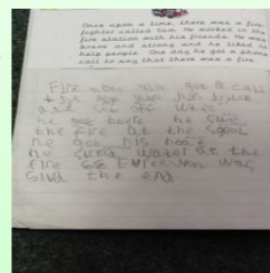 Once upon a time there was a fire
fighter called Sam. He worked in the
fire station with his friends. He was
brave and strong and he liked to
help people. One day he got a phone
call to say that there was a fire.
Fire man sam got a call
he got his truck
and set off when
he got there he swe
the fire at the sgool
he got his hoase
he sired water at the
fire so Evreewon was
sivd the end